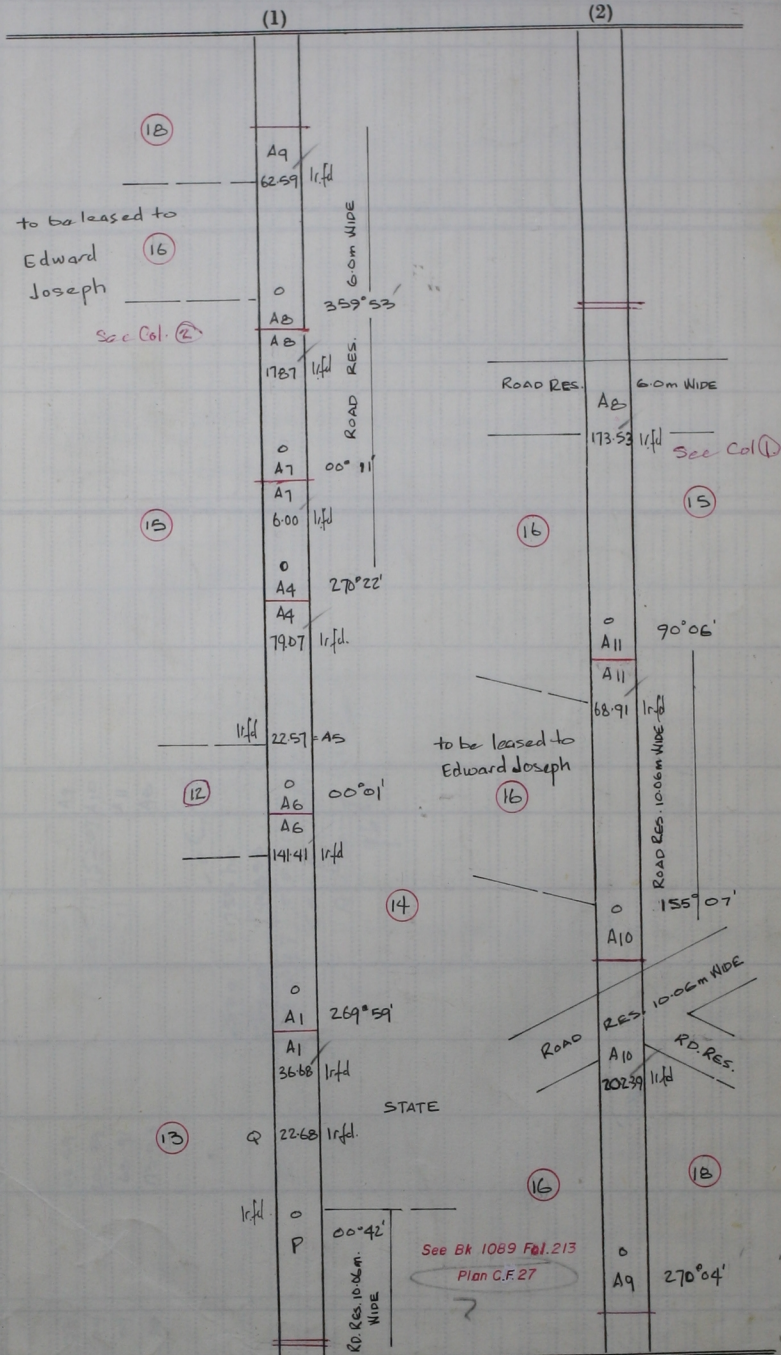 (1)
18
A9
62.59 Ir.fd
to be leased to
Edward 16
Joseph
6.0m WIDE
O
A8 359°53'
See Col. 2
A8
17.87 Ir.fd
ROAD RES.
O
A7 00°11'
A7
15 6.00 Ir.fd
O
A4 270°22'
A4
79.07 Ir.fd.
Ir.fd 22.57 = A5
12 O
A6 00°01'
A6
141.41 Ir.fd
14
O
A1 269°59'
A1
36.68 Ir.fd
STATE
13 Q 22.68 Ir.fd.
Ir.fd. O
P 00°42'
RD. RES. 10.06m.
WIDE
(2)
ROAD RES. 6.0m WIDE
A8
173.53 Ir.fd See Col 1
15
16
O
A11 90°06'
A11
68.91 Ir.fd
to be leased to
Edward Joseph
16
ROAD RES. 10.06m WIDE
O 155°07'
A10
ROAD RES. 10.06m WIDE
RD. RES.
A10
202.39 Ir.fd
16 18
O
A9 270°04'
See Bk 1089 Fol. 213
Plan C.F. 27